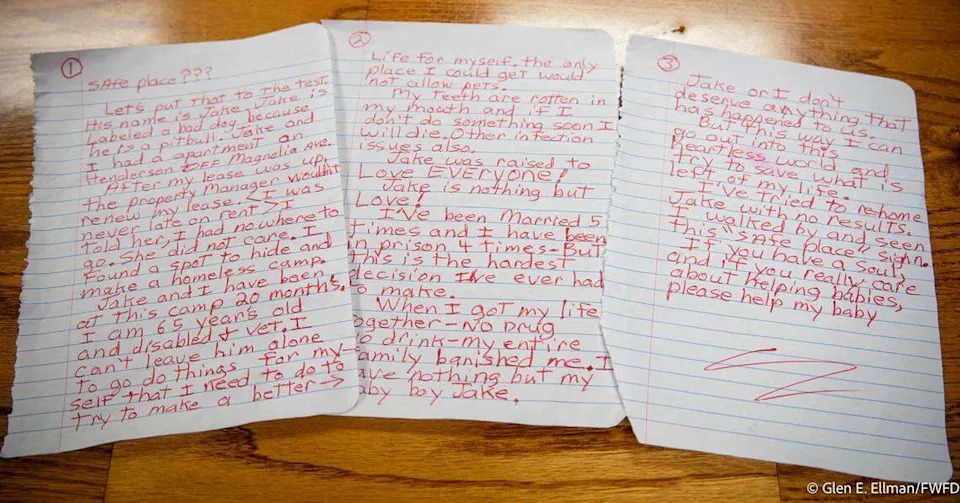 ①
SAfe place???
Let's put that to the test.
His name is Jake. Jake is
Labeled a bad dog because
he is a pitbull. Jake and
I had a apartment on
Henderson OFF Magnolia Ave.
After my lease was up,
the property Manager wouldn't
renew my lease. <I was
never late on rent> I
told her, I had nowhere to
go. She did not care. I
Found a spot to hide and
make a homeless camp.
Jake and I have been
at this camp 20 months.
I am 65 years old
and disabled & vet. I
can't leave him alone
to go do things for my-
self that I need to do to
try to make a better →
②
Life for myself. the only
place I could get would
not allow pets.
My teeth are rotten in
my mouth and if I
don't do something soon I
will die. Other infection
issues also.
Jake was raised to
Love EVERYONE!
Jake is nothing but
Love!
I've been Married 5
times and I have been
in prison 4 times-But
this is the hardest
decision I've ever had
to make.
When I got my life
together-No Drug
no drink-my entire
family banished me. I
have nothing but my
baby boy Jake.
③
Jake or I don't
deserve anything that
has happened to us.
But this way I can
go out into this
heartless world and
try to save what is
left of my life.
I've tried to re-home
Jake with no results.
I walked by and seen
this "SAfe place" sign.
If you have a soul,
and if you really care
about helping babies,
please help my baby
© Glen E. Ellman/FWFD